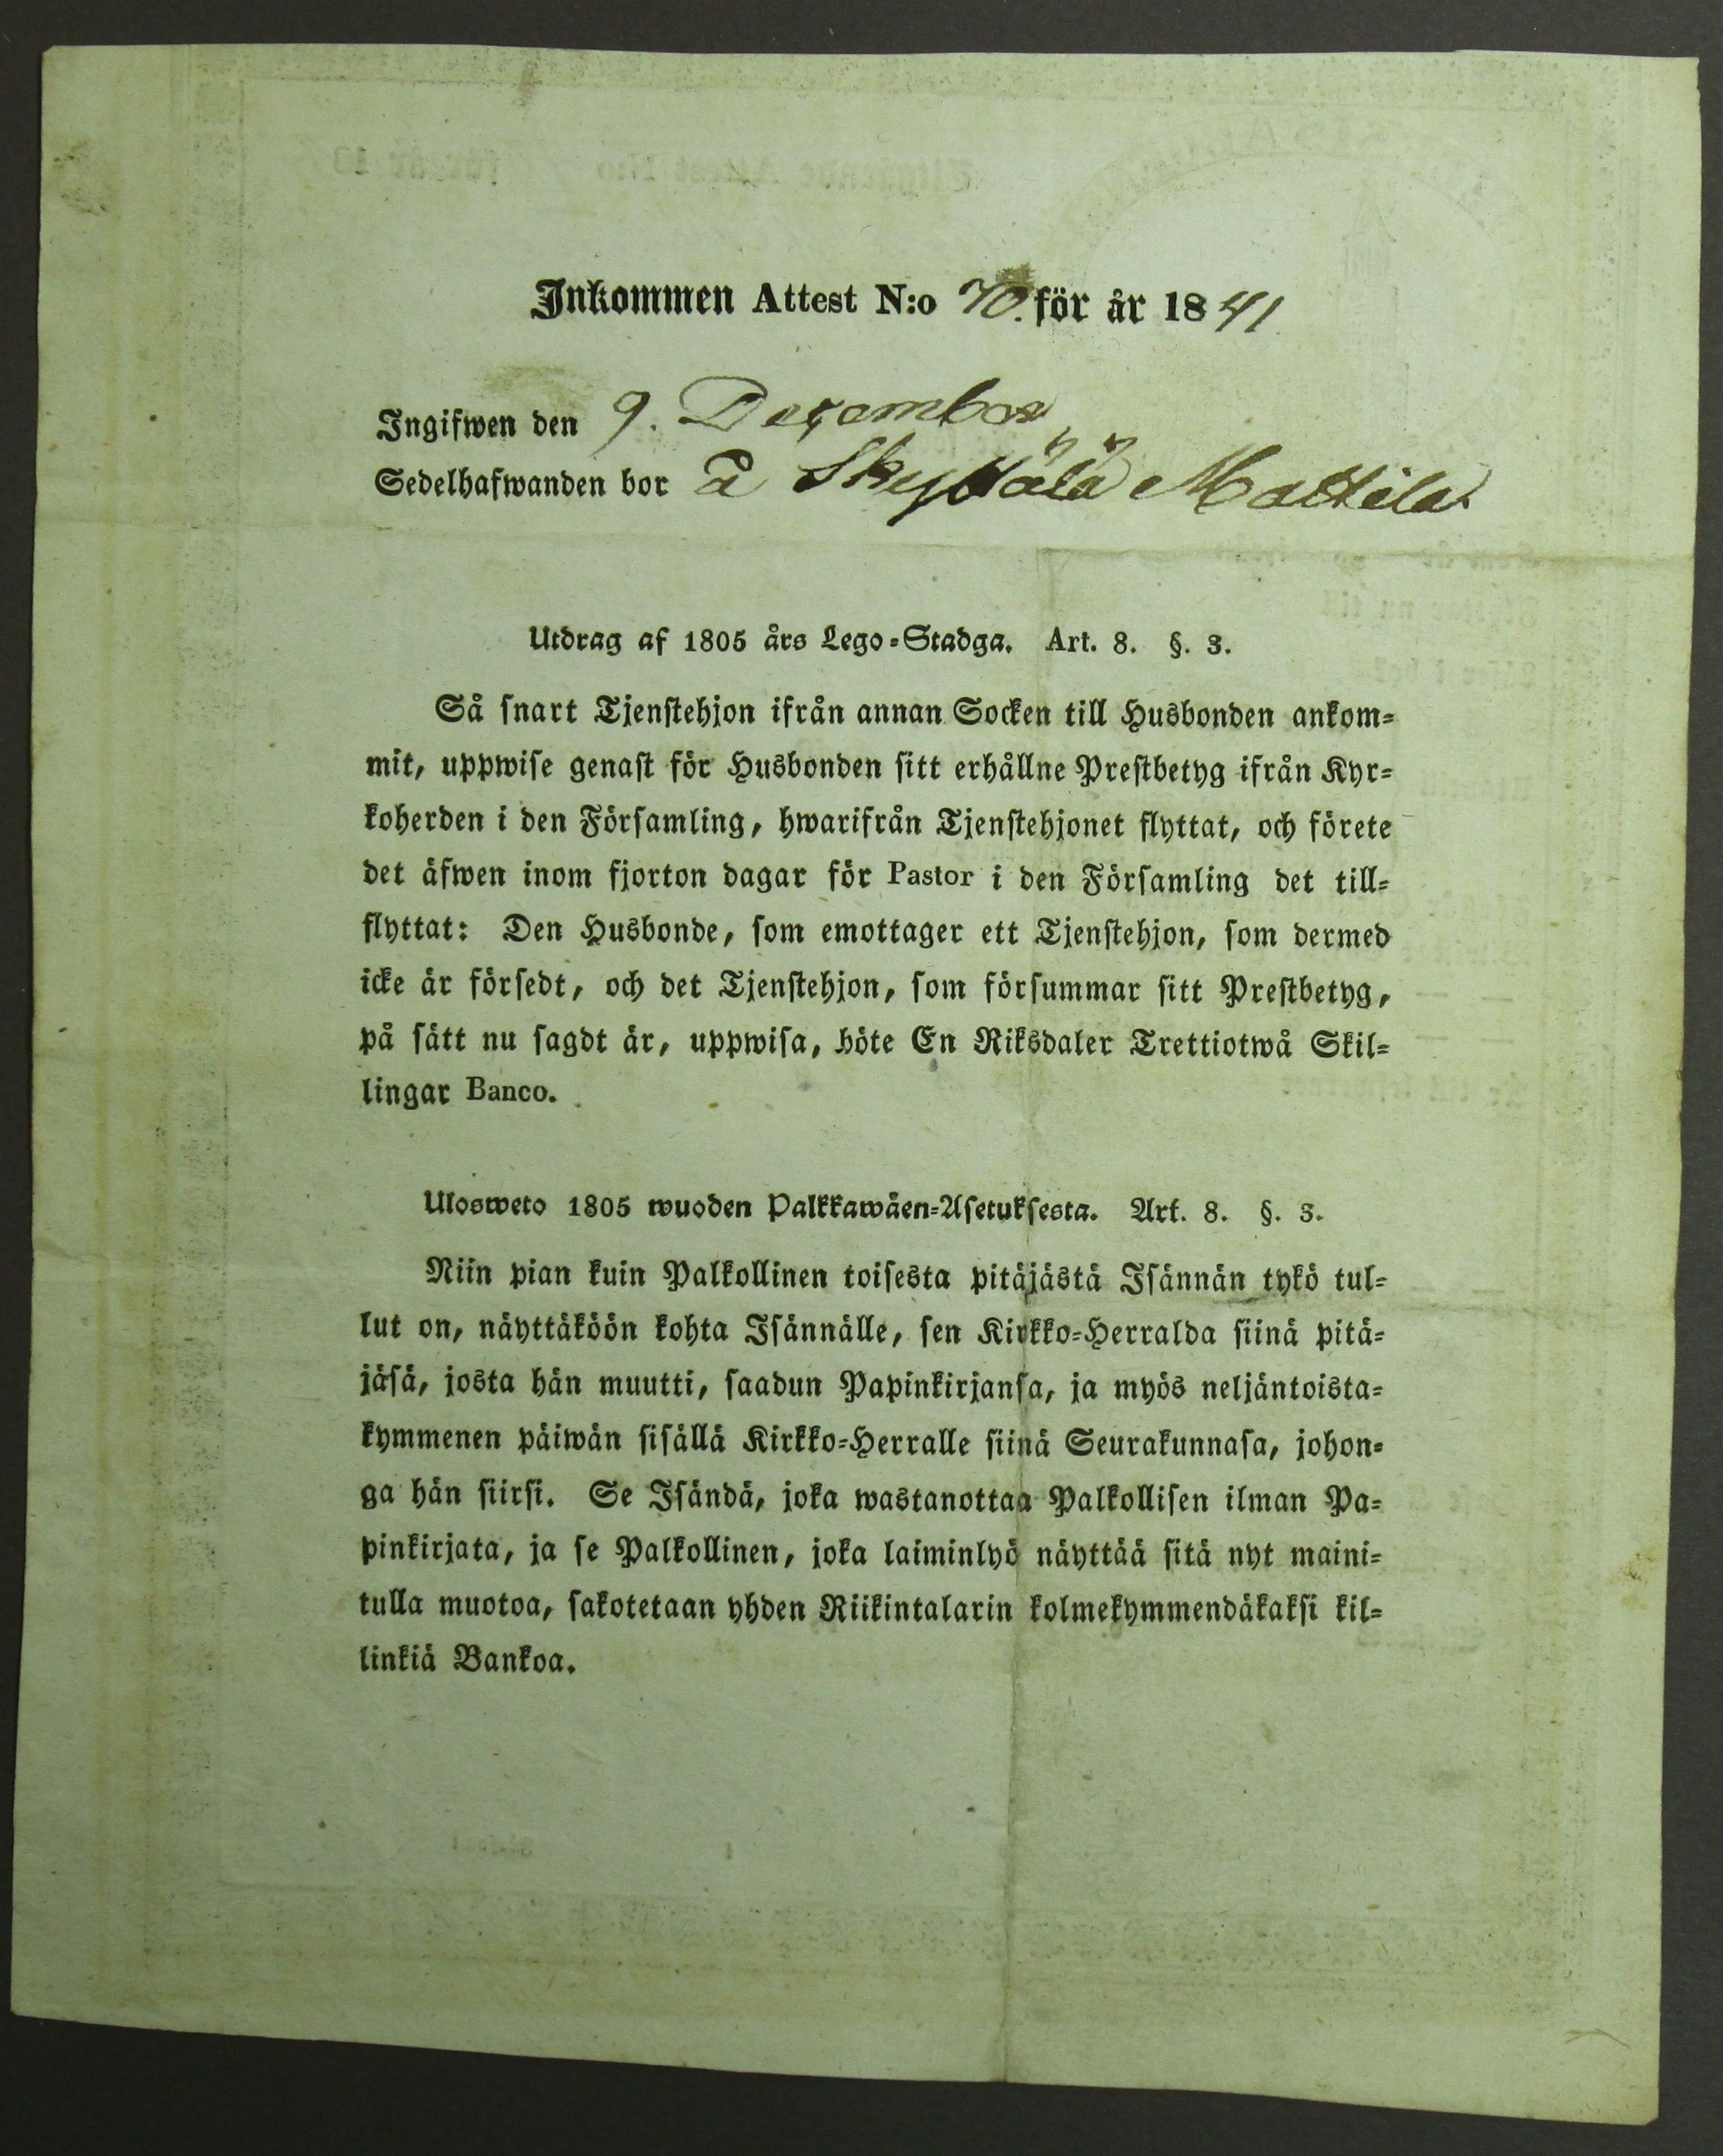 Inkommen Attest N:o 70. för år 1841
Ingifwen den 9. December
Sedelhafwanden bor å Skyttälä Mattila
Utdrag af 1805 års Lego-Stadga. Art. 8. §. 3.
Så snart Tjenstehjon ifrån annan Socken till Husbonden ankom-
mit, uppwise genast för Husbonden sitt erhållne Prestbetyg ifrån Kyr-
koherden i den Församling, hwarifrån Tjenstehjonet flyttat, och förete
det äfwen inom fjorton dagar för Pastor i den Församling det till-
flyttat: Den Husbonde, som emottager ett Tjenstehjon, som dermed
icke är försedt, och det Tjenstehjon, som försummar sitt Prestbetyg,
på sätt nu sagdt är, uppwisa, böte En Riksdaler Trettiotwå Skil-
lingar Banco.
Ulosweto 1805 wuoden Palkkawäen-Asetuksesta. Art. 8. §. 3.
Niin pian kuin Palkollinen toisesta pitäjästä Isännän tykö tul-
lut on, näyttäköön kohta Isännälle, sen Kirkko-Herralda siinä pitä-
jäsä, josta hän muutti, saadun Papinkirjansa, ja myös neljäntoista-
kymmenen päiwän sisällä Kirkko-Herralle siinä Seurakunnasa, johon-
ga hän siirsi. Se Isändä, joka wastanottaa Palkollisen ilman Pa-
pinkirjata, ja se Palkollinen, joka laiminlyö näyttää sitä nyt maini-
tulla muotoa, sakotetaan yhden Riikintalarin kolmekymmendäkaksi kil-
linkiä Bankoa.